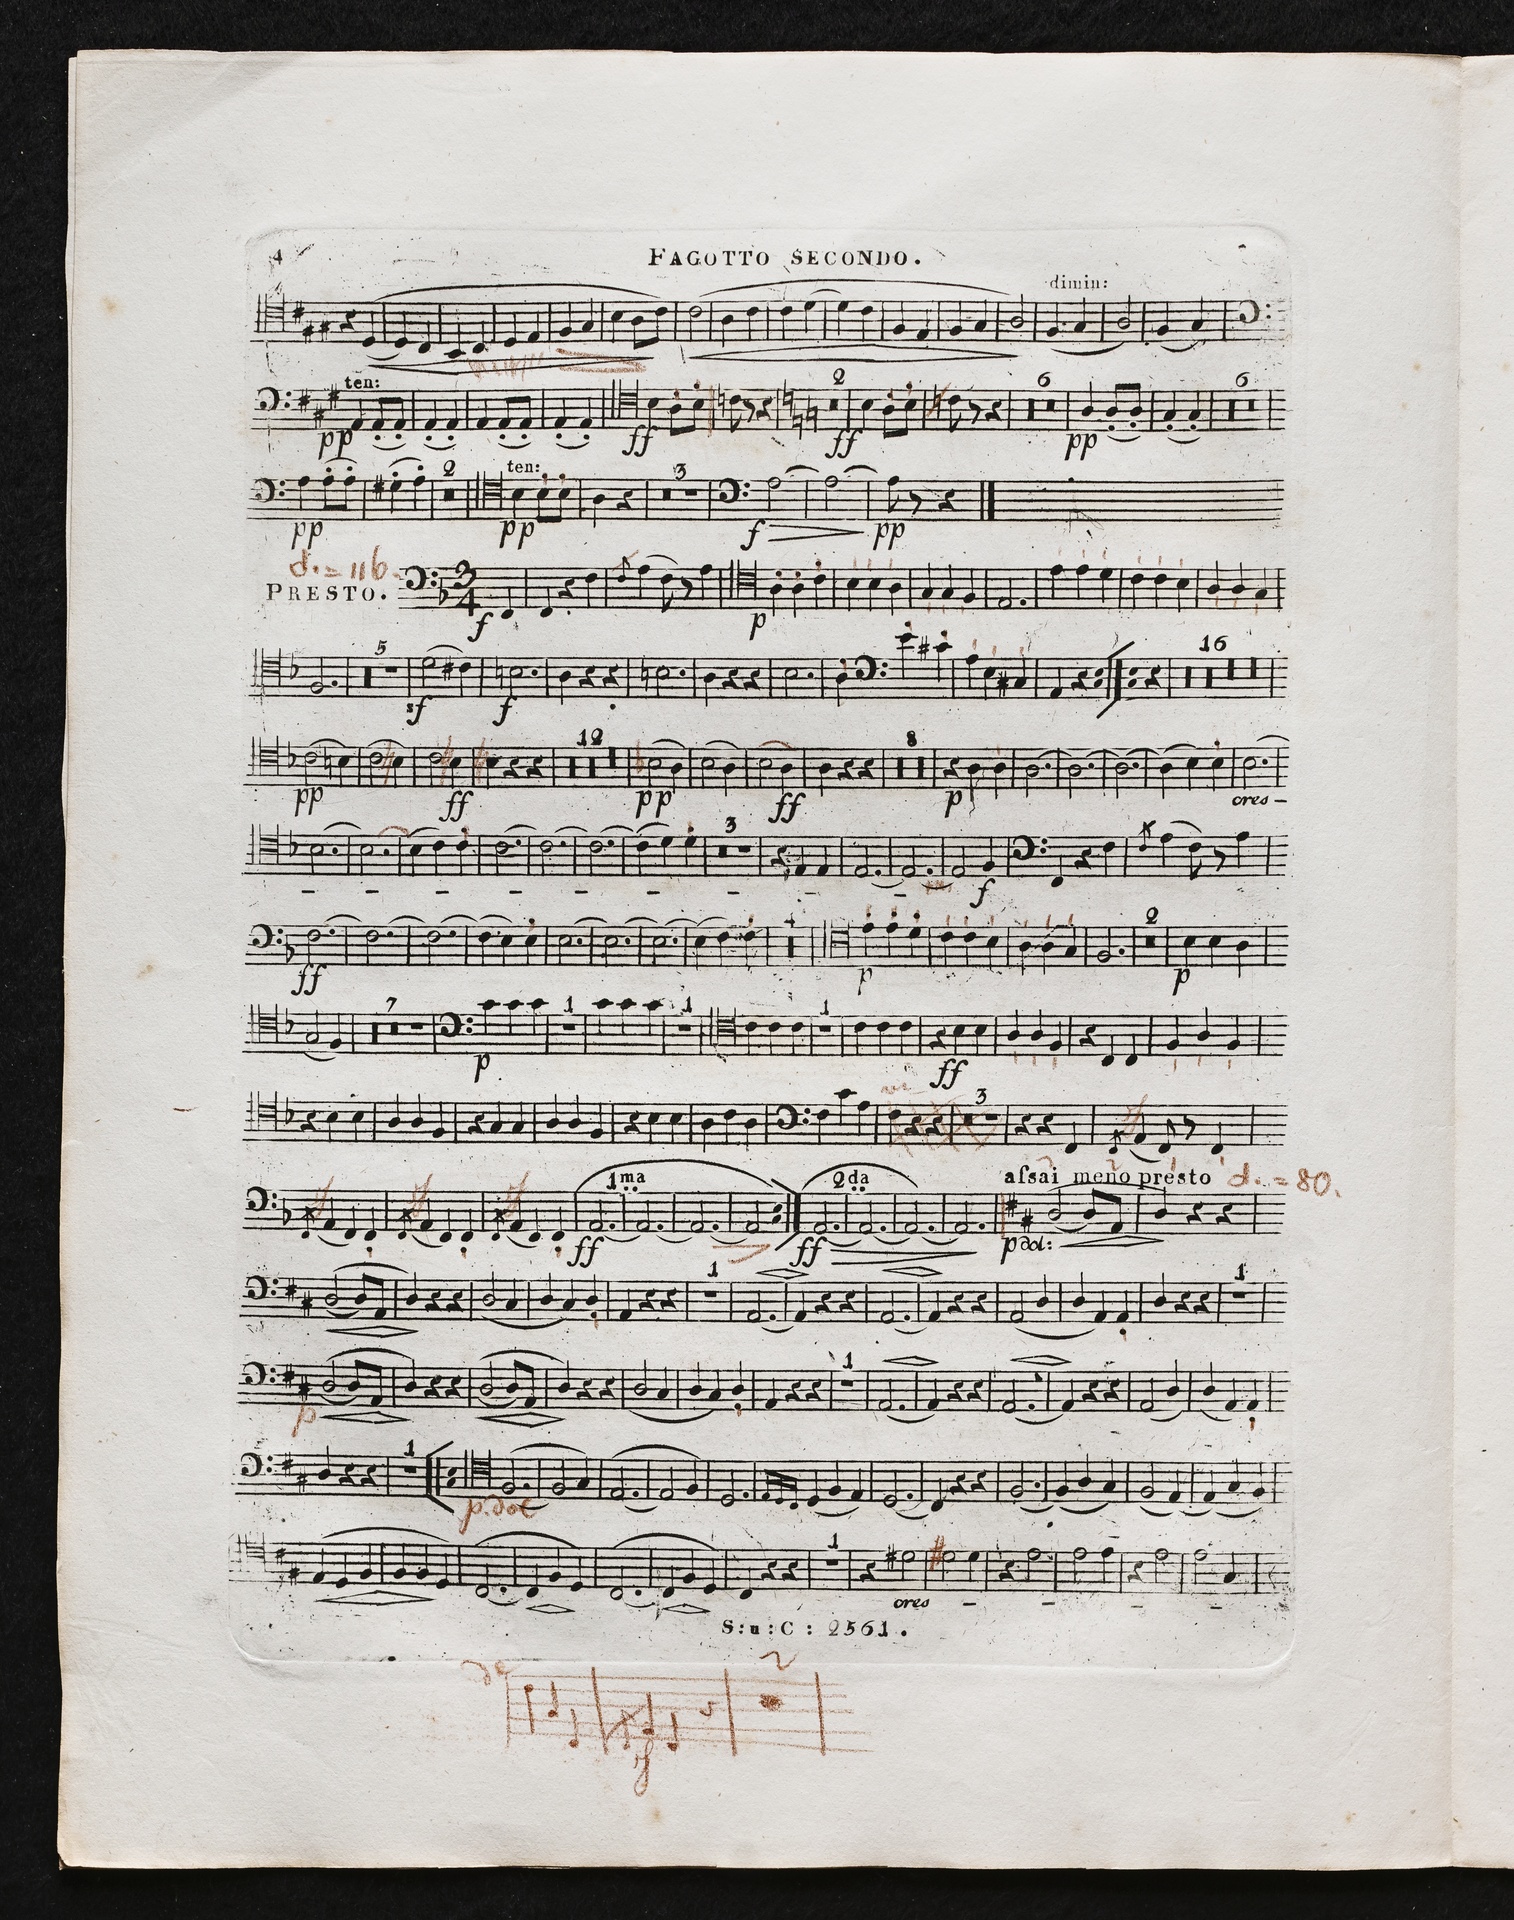 4 FAGOTTO SECONDO.
dimin:
ten:
pp ff 2 ff 6 pp 6
pp 2 ten: pp 3 f pp
d. = 116.
PRESTO. 3 4 f p
5 sf f 16
pp ff 12 pp ff 8 p cres –
3 f
ff p 2 p
7 p 1 1 1 ff
vi 3
1ma 2da assai meno presto d. = 80.
ff ff p dol:
1 1
p 1
1 p. dol
1 cres
S: u: C: 2561.
de 2